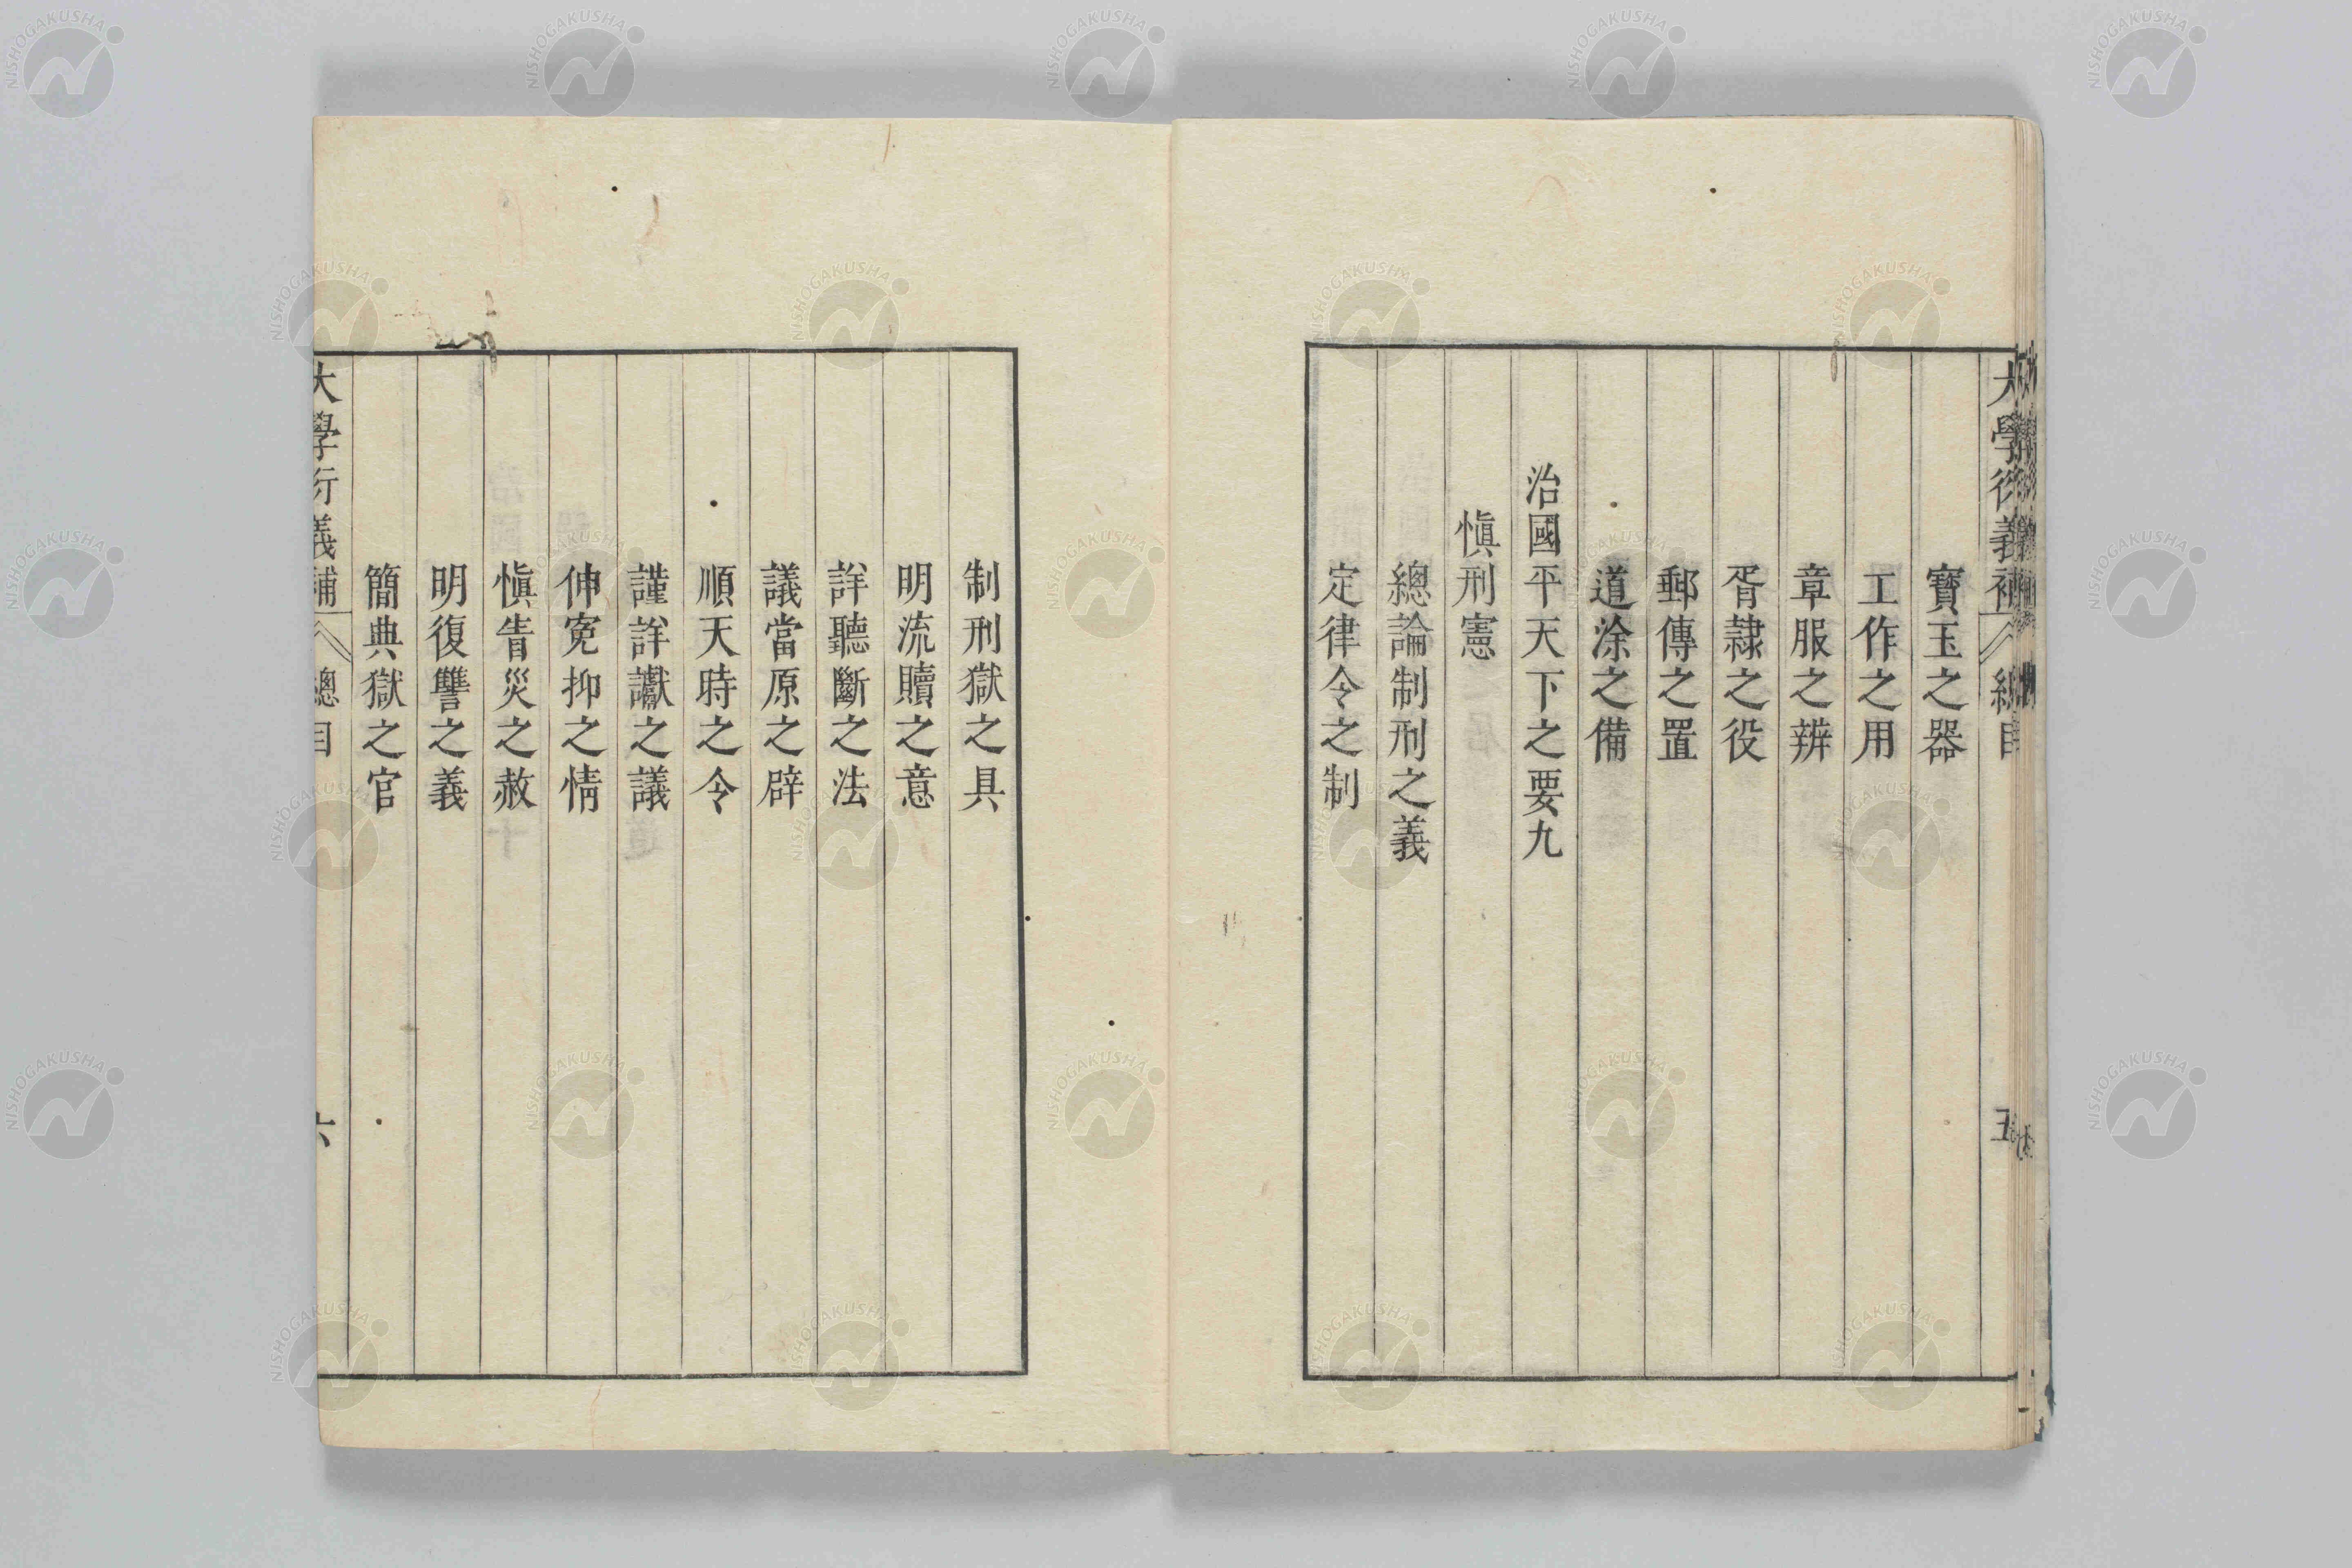 大學衍義補 總目 五
寶玉之器
工作之用
章服之辨
胥隷之役
郵傳之置
道涂之備
治國平天下之要九
愼刑憲
總論制刑之義
定律令之制
制刑獄之具
明流贖之意
詳聽斷之法
議當原之辟
順天時之令
謹詳讞之議
伸寃抑之情
愼眚災之赦
明復讐之義
簡典獄之官
大學衍義補 總目 六
NISHOGAKUSHA